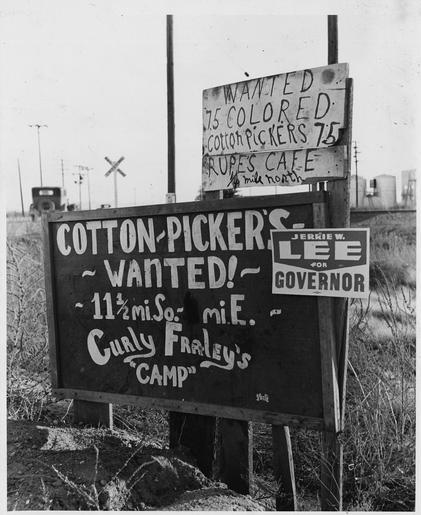 WANTED
75 COLORED
cotton PICKERS 75
RUPES CAFE
½ mile north
COTTON-PICKER'S
~ WANTED! ~
- 11½ mi. So. - mi. E. -
Curly Farley's
"CAMP"
JERRIE W.
LEE
FOR
GOVERNOR